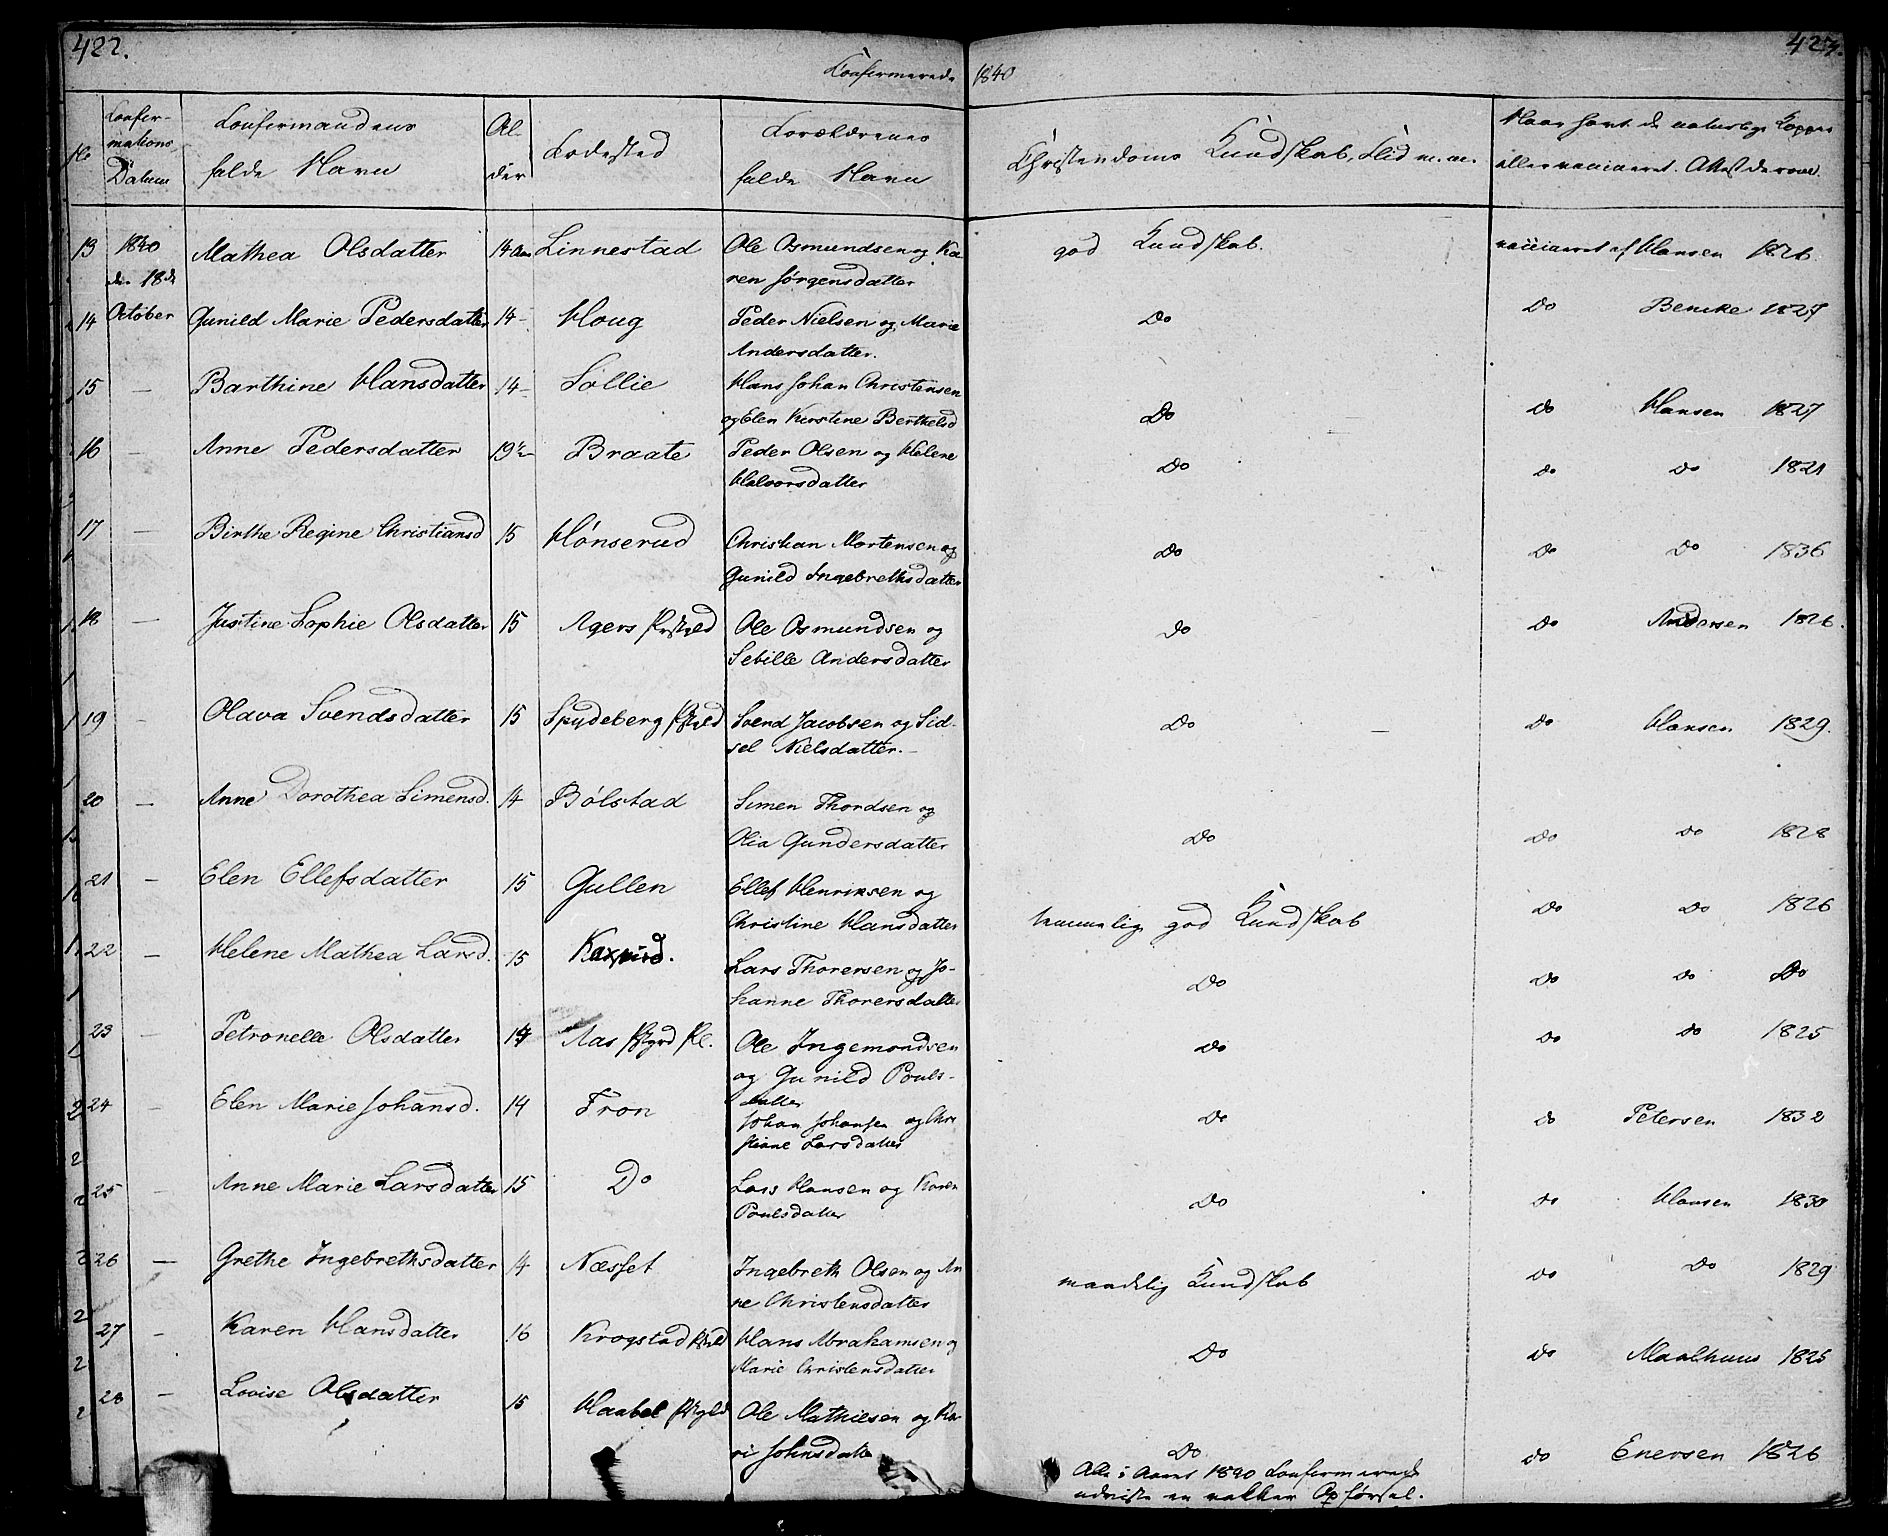 422.
423.
Confirmerede 1840
No
Confer-
mations
Datum
Confirmandens
fulde Navn
Al-
der
Fødested
Forældrenes
fulde Navn
Christendoms Kundskab, Flid m.m.
Naar havt de naturlige Kopper
eller vaccineret. Attest derom.
13 1840 Mathea Olsdatter 14 Aar Linnestad Ole Osmundsen og Ka- god Kundskab. vaccineret af Hansen 1826
den 18de ren Jørgensdatter
14 October Gunild Marie Pedersdatter 14 - Houg Peder Nielsen og Marie Do Do Bencke 1827
Andersdatter.
15 — Barthine Hansdatter 14 - Sollie Hans Johan Christensen Do Do Hansen 1827
og Elen Kirstine Berthelsd
16 — Anne Pedersdatter 19½ Braate Peder Olsen og Helene Do Do Do 1821
Halvorsdatter
17 — Birthe Regine Christiansd 15 Hønserud Christian Mortensen og Do Do Do 1836
Gunild Ingebrethsdatter
18 — Justine Sophie Olsdatter 15 Agers Præstgjeld Ole Osmundsen og Do Do Andersen 1826.
Sebille Andersdatter
19 — Olava Svendsdatter 15 Spydeberg Svend Jacobsen og Sid- Do Do Hansen 1829.
sel Nielsdatter. —
20 — Anne Dorothea Simensd. 14 Bölstad Simen Thordsen og Do Do Do 1828
Olia Gundersdatter
21 — Elen Ellefsdatter 15 Gullen Ellef Henriksen og temmelig god Kundskab Do Do 1826
Christine Hansdatter
22 — Helene Mathea Larsd. 15 Lars Thorersen og Jo- Do Do Do Do
hanne Thorersdatter
23 — Petronelle Olsdatter Aas Ole Ingemondsen Do Do Do 1825
og Gunild Pouls-
datter
24 — Elen Marie Johansd. 14 Fron Johan Johansen og Chri- Do Do Petersen 1832
stiane Larsdatter
25 — Anne Marie Larsdatter 15 Do Lars Hansen og Karen Do Do Hansen 1830
Poulsdatter
26 — Grethe Ingebrethsdatter 14 Næsset Ingebreth Olsen og An maadelig Kundskab Do Do 1829
ne Christensdatter
27 — Karen Hansdatter 16 Krogstad Hans Abrahamsen og Do Do Maalhuus 1825
Marie Christensdatter
28 — Lovise Olsdatter 15 Haabel Ole Mathiesen og Ka- Do Do Enersen 1826
ri Johnsdatter
Alle i Aaret 1840 Confirmerede
udviste en vakker Opførsel.